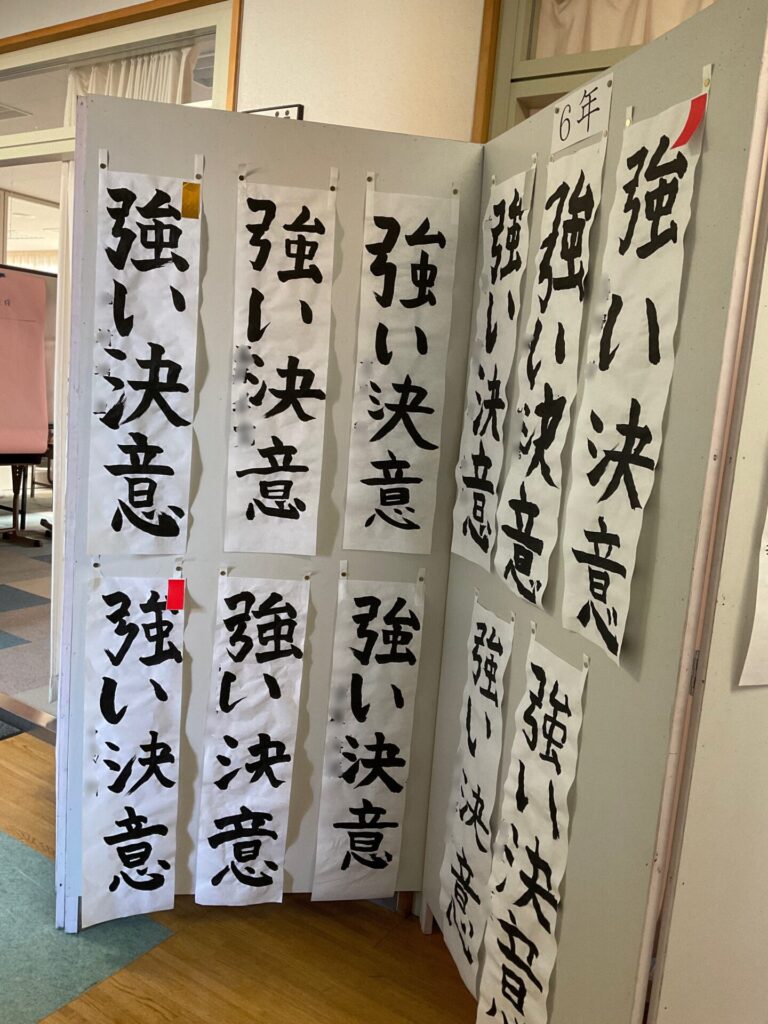 6年
強い決意
強い決意
強い決意
強い決意
強い決意
強い決意
強い決意
強い決意
強い決意
強い決意
強い決意